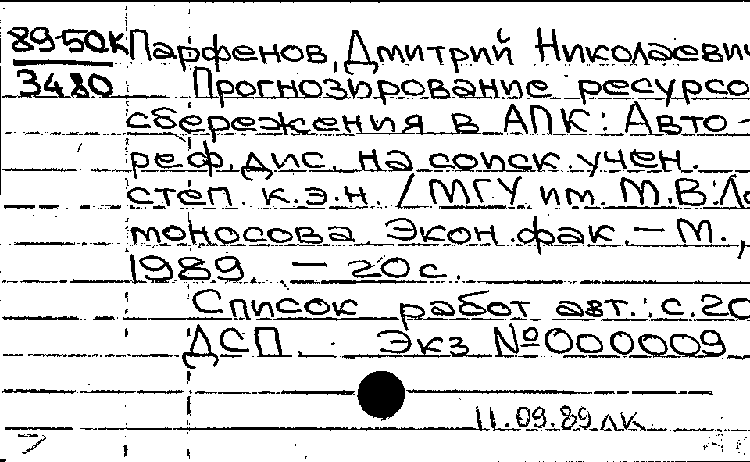 89-50к Парфенов, Дмитрий Николаевич
3480 Прогнозирование ресурсо
сбережения в АПК: Авто-
реф. дис. на соиск. учен.
степ. к.э.н. / МГУ им. М.В. Ло
моносова. Экон. фак. – М.,
1989. – 20 с.
Список работ авт.: с. 20
ДСП. Экз №000009
11.09.89 лк